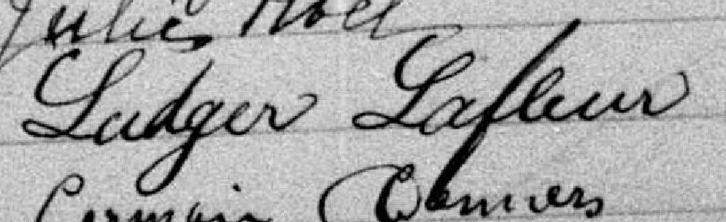 Jules Noël
Ludger Lafleur
Germain Demers